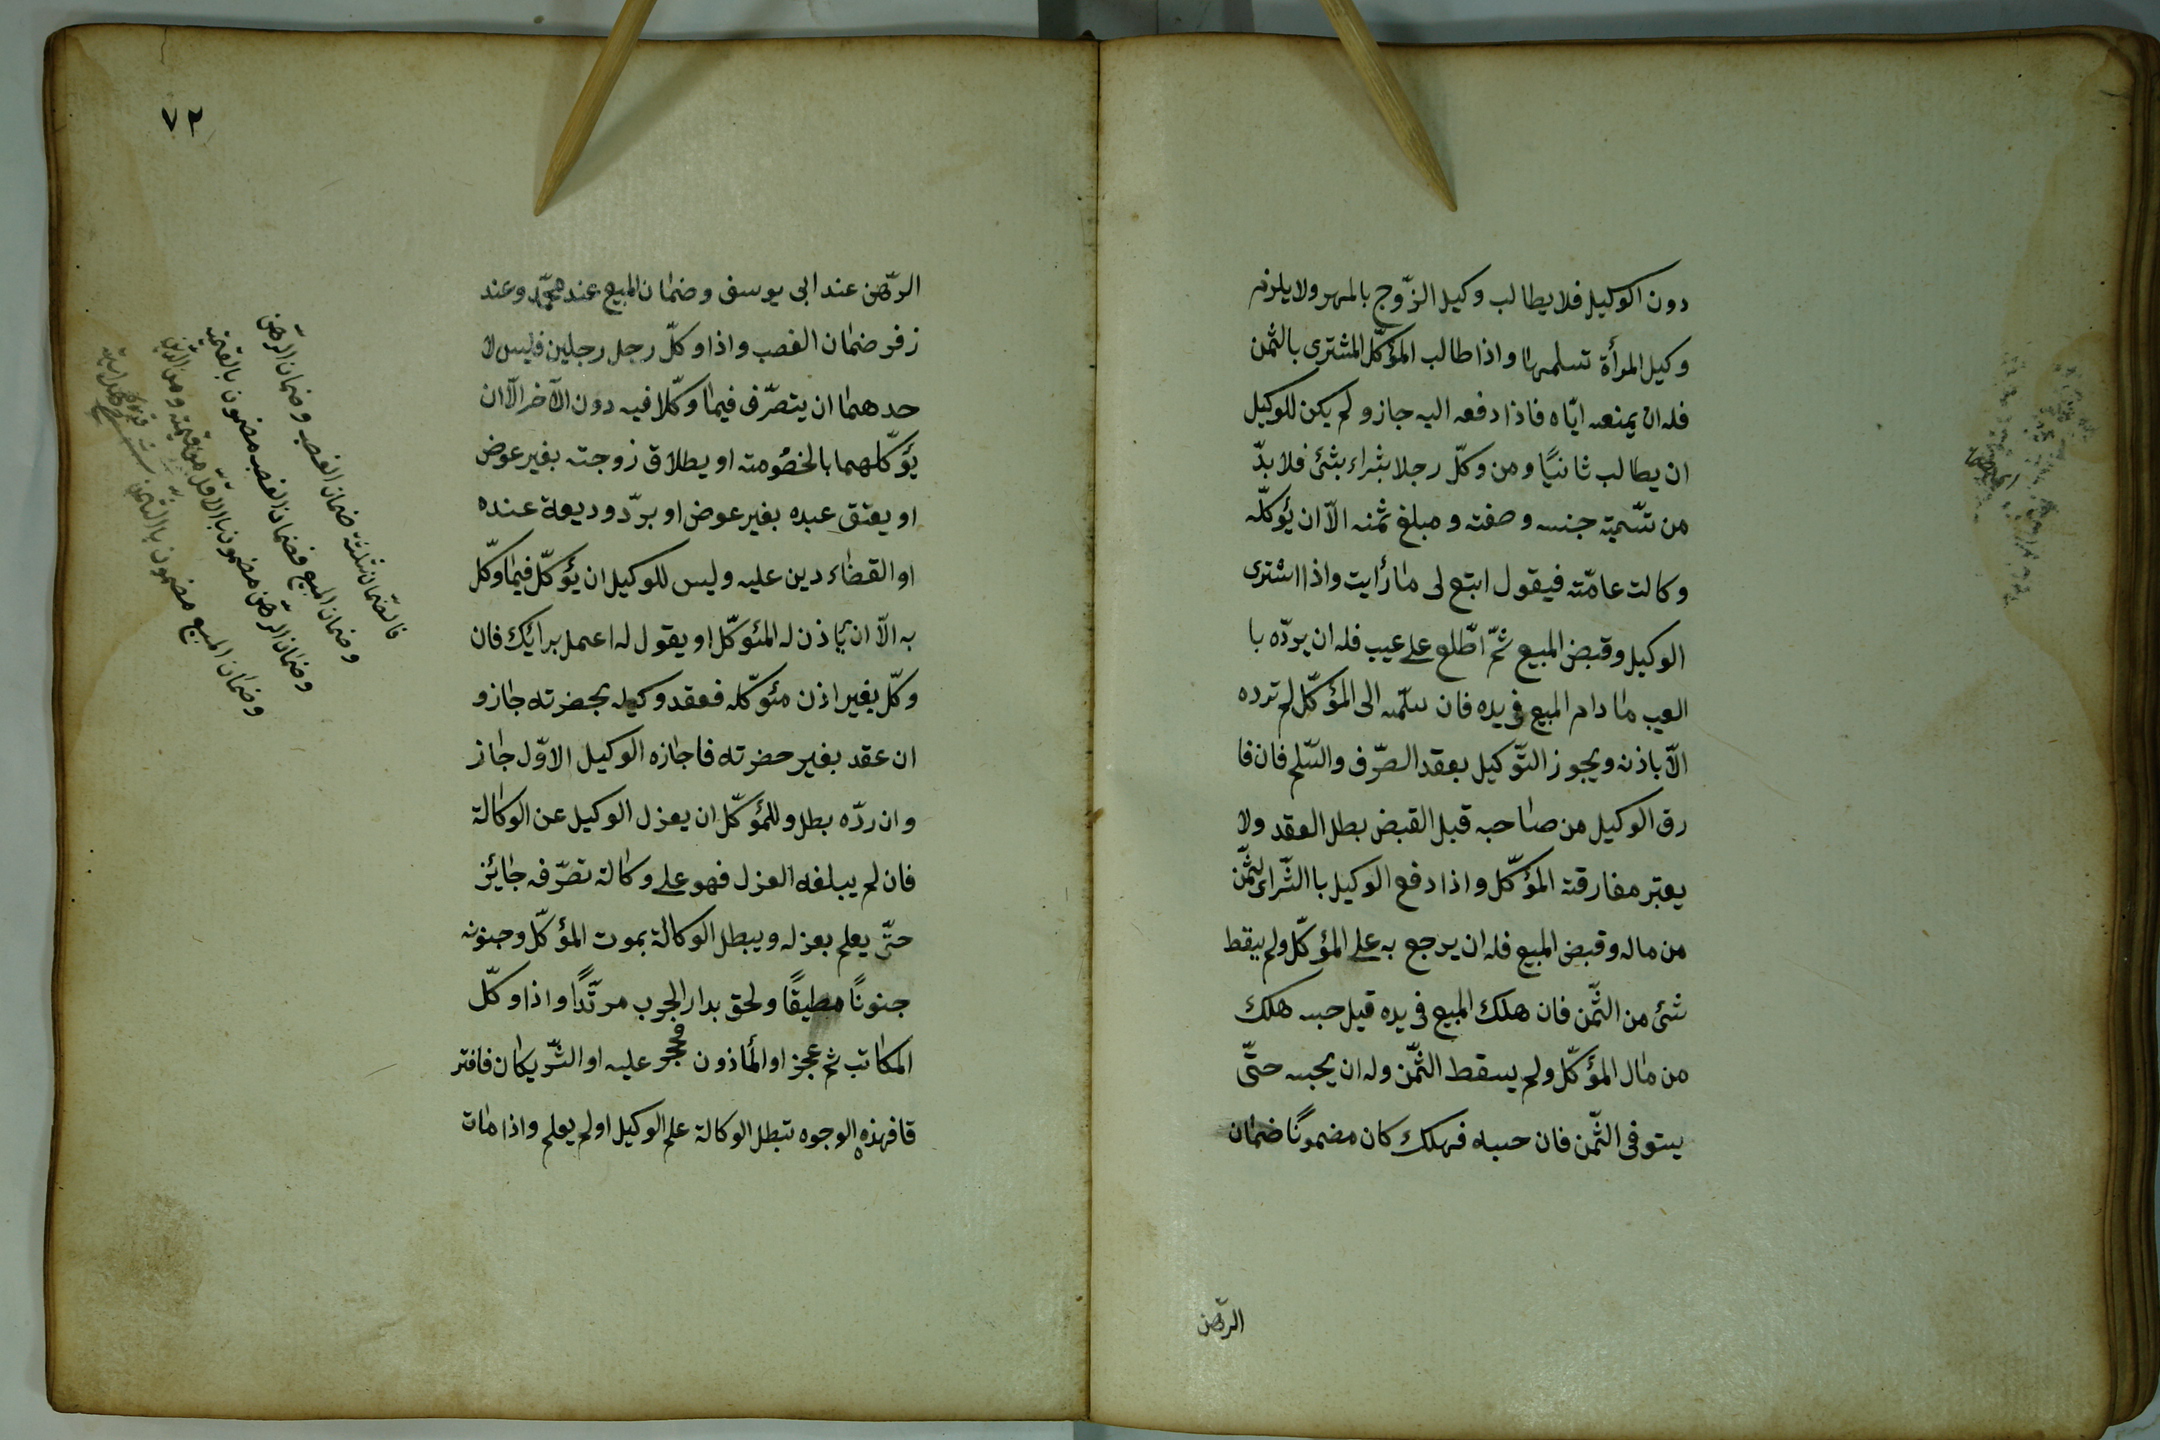 دون الوكيل فلا يطالب وكيل الزّوج بالمهر ولا يلزم
وكيل المرأة تسلمها واذا طالب المؤكّل المشترى بالثمن
فله ان يمنعه ايّاه فاذا دفعه اليه جاز ولم يكن للوكيل
ان يطالب ثانيًا ومن وكّل رجلا بشراء بشئ فلا بدّ
من تسّمية جنسه وصفته ومبلغ ثمنه الاّ ان يؤكلّه
وكالت عامّته فيقول ابتع لى ما رأيت واذا اشترى
الوكيل وقبض المبيع ثمّ اطّلع على عيب فله ان يردّه با
العيب ما دام المبيع فى يده فان سلّمه الى المؤكّل لم ترده
الاّ باذنه ويجوز التّوكيل بعقد الصّرف والسّلم فان فا
رق الوكيل من صاحبه قبل القبض بطل العقد ولا
يعتبر مفارقته المؤكّل واذا دفع الوكيل با الشّراى الثّمن
من ماله وقبض المبيع فله ان يرجع به على المؤكّل ولم يبقط
شئ من الثّمن فان هلك المبيع فى يده قبل حبسه هلك
من مال المؤكّل ولم يسقط الثّمن وله ان يحبسه حتّى
يستوفى الثّمن فان حبسه فهلك كان مضمونًا ضمان
الرّهن
٧٢
الرّهن عند ابى يوسف وضمان المبيع عند محمّد وعند
زفر ضمان الغصب واذا وكلّ رجل رجلين فليس لا
حدهما ان يتصرّف فيما وكّلا فيه دون الآخر الاّ ان
يؤكّلهما بالخصومته او يطلاق زوجته بغير عوض
او يعتق عبده بغير عوض او بردّ وديعة عنده
او القضاء دين عليه وليس للوكيل ان يؤكّل فيما وكّل
به الاّ ان يأذن له المئوكّل او يقول له اعمل برائك فان
وكّل بغير اذن مئوكّله فعقد وكيله بحضرته جاز و
ان عقد بغير حضرته فاجازه الوكيل الاوّل جاز
وان ردّه بطل وللمؤكّل ان يعزل الوكيل عن الوكالة
فان لم يبلغه العزل فهو على وكالة تصرّفه جايز
حتّى يعلم بعزله ويبطل الوكالة بموت المؤكّل وجنونه
جنونًا مطبقًا ولحق بدار الحرب مرتدًّا واذا وكّل
المكاتب ثم عجز او المأذون فحجر عليه او الشّريكان فافتر
قا فهذه الوجوه تبطل الوكالة علم الوكيل اولم يعلم واذا مات
فالضّمان ثلثة ضمان الغصب وضمان الرّهن
وضمان المبيع فضمان الغصب مضمون بالقيمة
وضمان الرّهن مضمون بالاقلّ من قيمته ومن الدّين
وضمان المبيع مضمون بالثّمن